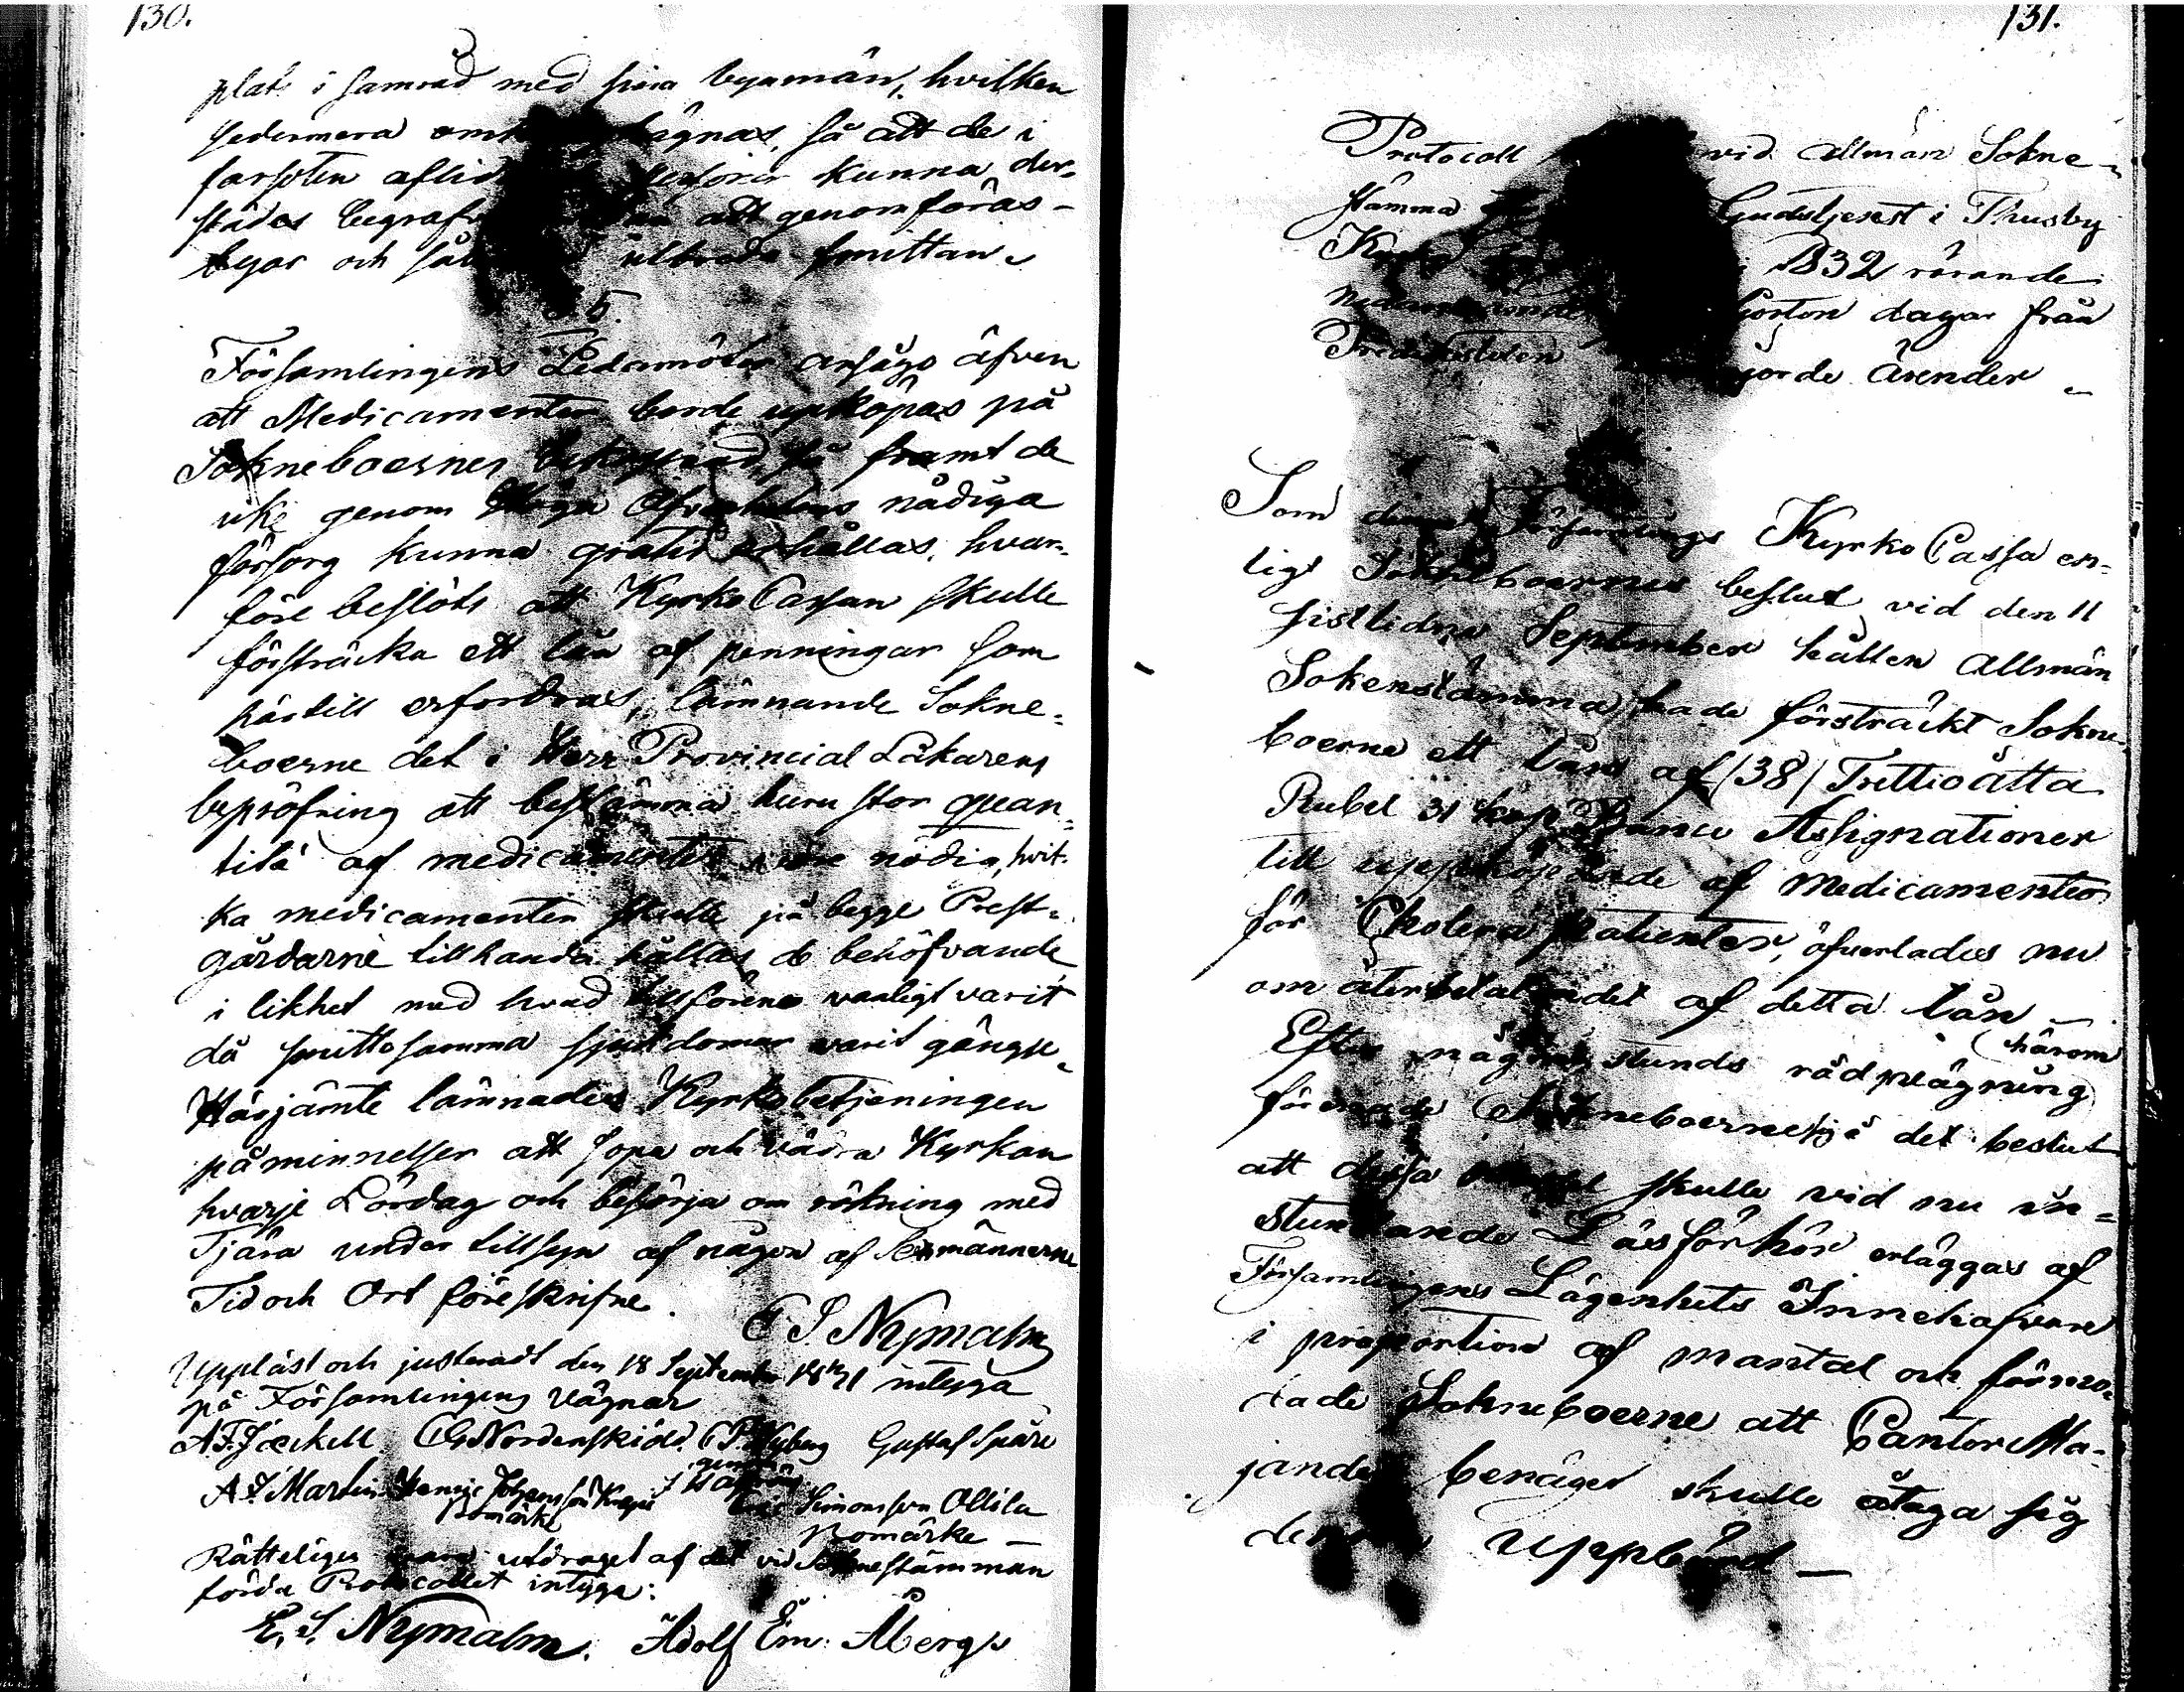 130.
plats i samråd med sina byamän, hvilken
sedermera ägnas, så att de i
farsoten kunna der-
städes att genomföras
byar och utbreda smittan
§ 5.
Församlingens Ledamöter ansågo äfven
att Medicamenter borde uppköpas på
Sokneboernes bekostnad, så framt de
icke genom Höga Öfverhetens nådiga
försorg kunna gratis erhållas, hvar-
före beslöts att Kyrko Cassan skulle
försträcka ett lån af penningar som
härtill erfordras, lämnande Sokne-
boerne det i Herr Provincial Läkarens
bepröfning att bestämma huru stor quan-
tité af medicamenter vore nödig, hvil-
ka medicamenter skulle på begge Prest-
gårdarne tillhanda hållas de behöfvande
i likhet med hvad tillförene vanligt varit
då smittosamma sjukdomar varit gängse
Härjämte lämnades Kyrkobetjeningen
påminnelser att sopa och vädra Kyrkan
hvarje Lördag och besörja om rökning med
Tjära under tillsyn af någon af Sexmännerne
Tid och Ort föreskrifne.
E S Nymalm
Uppläst och justeradt den 18 September 1831 intyga
på Församlingens vägnar
A. F. Jæckell. CG Nordenskiöld. C P. Nyberg Gustaf Spåre
A. F. Martin Henric Johansson
Bomärke Simonsson Ollila
Bomärke
Rätteligen vara utdraget af det vid Sokne stämman
förda Protocollet intyga:
E. S. Nymalm. Adolf Em: Åberg
131.
Protocoll vid Allmän Sokne-
stämma Gudstjenst i Thusby
Kyrka 1832 rörande
fjorton dagar från
Predikstolen Ärender
Som denna Församlings Kyrko Cassa en-
ligt Sokneboernes beslut vid den 11
sistlidne September hållen Allmän
Sokenstämma hade försträckt Sokne-
boerne ett Lån af (38) Trettioåtta
Rubel 31 kop Banco Assignationer
till uppköpande af Medicamenter
för Cholera patienter, öfverlades nu
om återbetalandet af detta lån
Efter någon stunds rådplägning härom
förenade Sokneboerne sig i det beslut
att dessa skulle vid nu in-
stundande Läsförhör erläggas af
Församlingens Lägenhets Innehafvare
i proportion af mantal och förmo-
dade Sokneboerne att Cantor Ma-
jander benäget skulle åtaga sig
denna Uppbörd